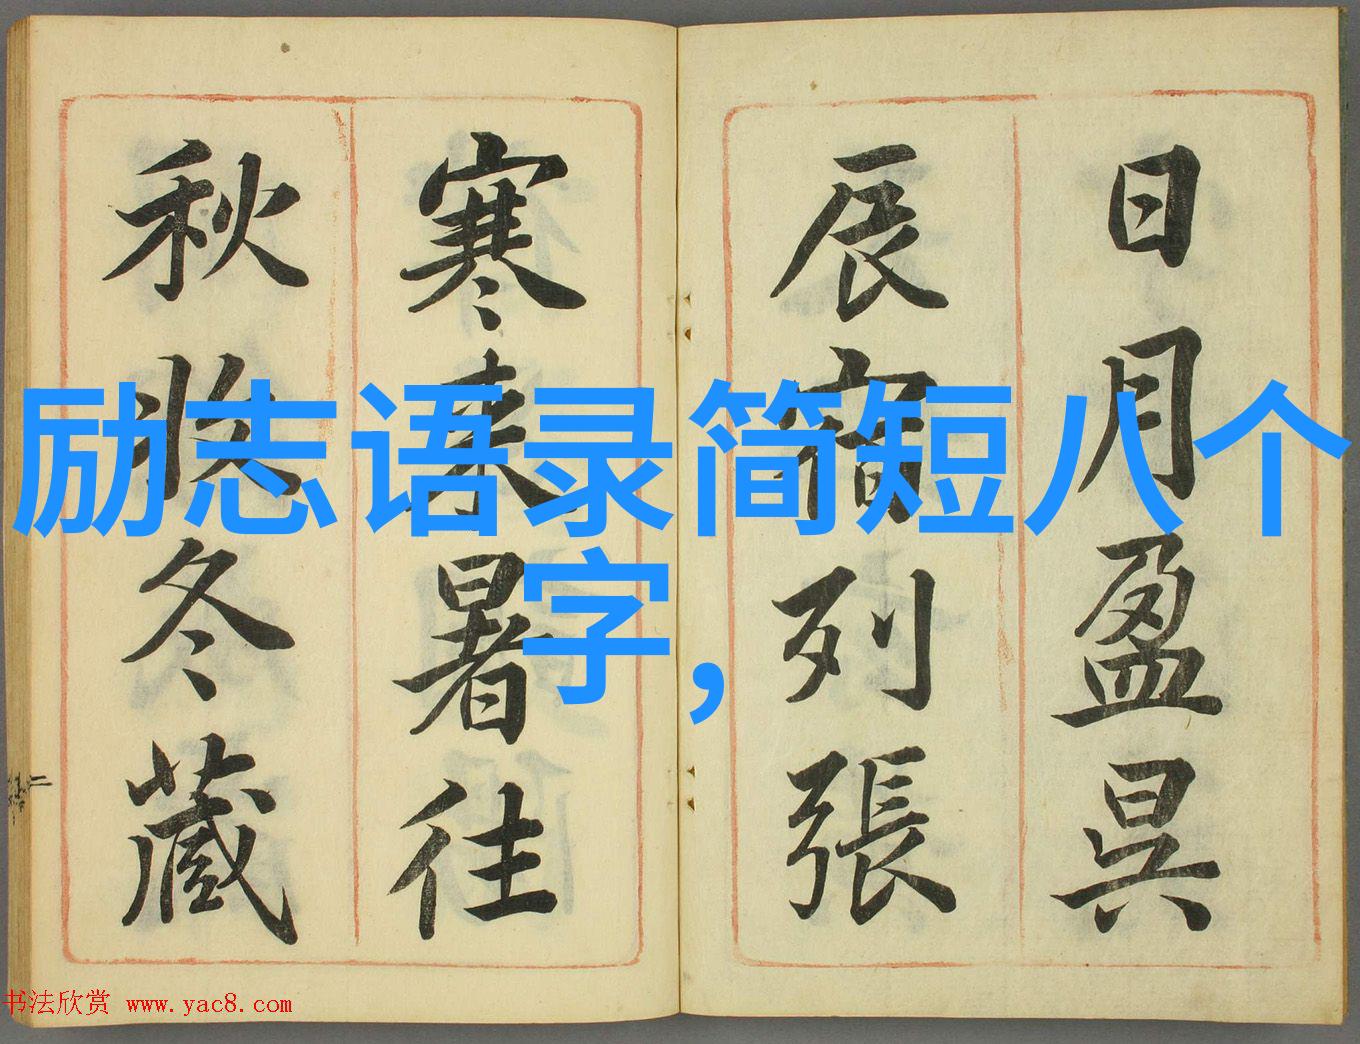 日月盈昃
辰宿列張
寒来暑往
秋收冬藏
励志语录简短八个
字,
二
书法欣赏 www.yac8.com